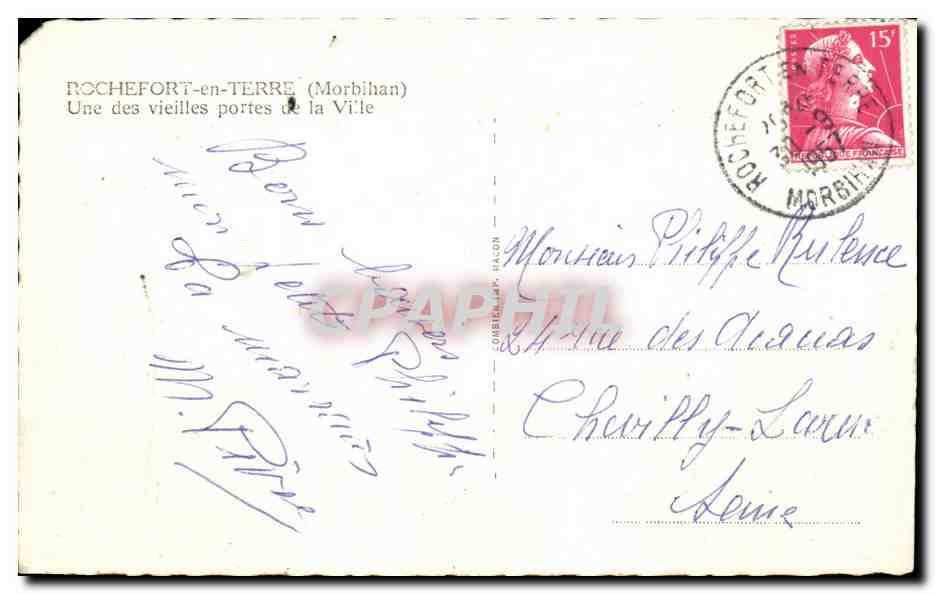 ROCHEFORT-en-TERRE (Morbihan)
Une des vieilles portes de la Ville
Bons baisers
mon petit Philippe
La marraine
M.
COMBIER IMP. MACON
15F
POSTES
REPUBLIQUE FRANCAISE
ROCHEFORT EN TERRE
1957
MORBIHAN
CPAPHIL
Monsieur Philippe
24 rue des Acacias
Chevilly-Larue
Seine